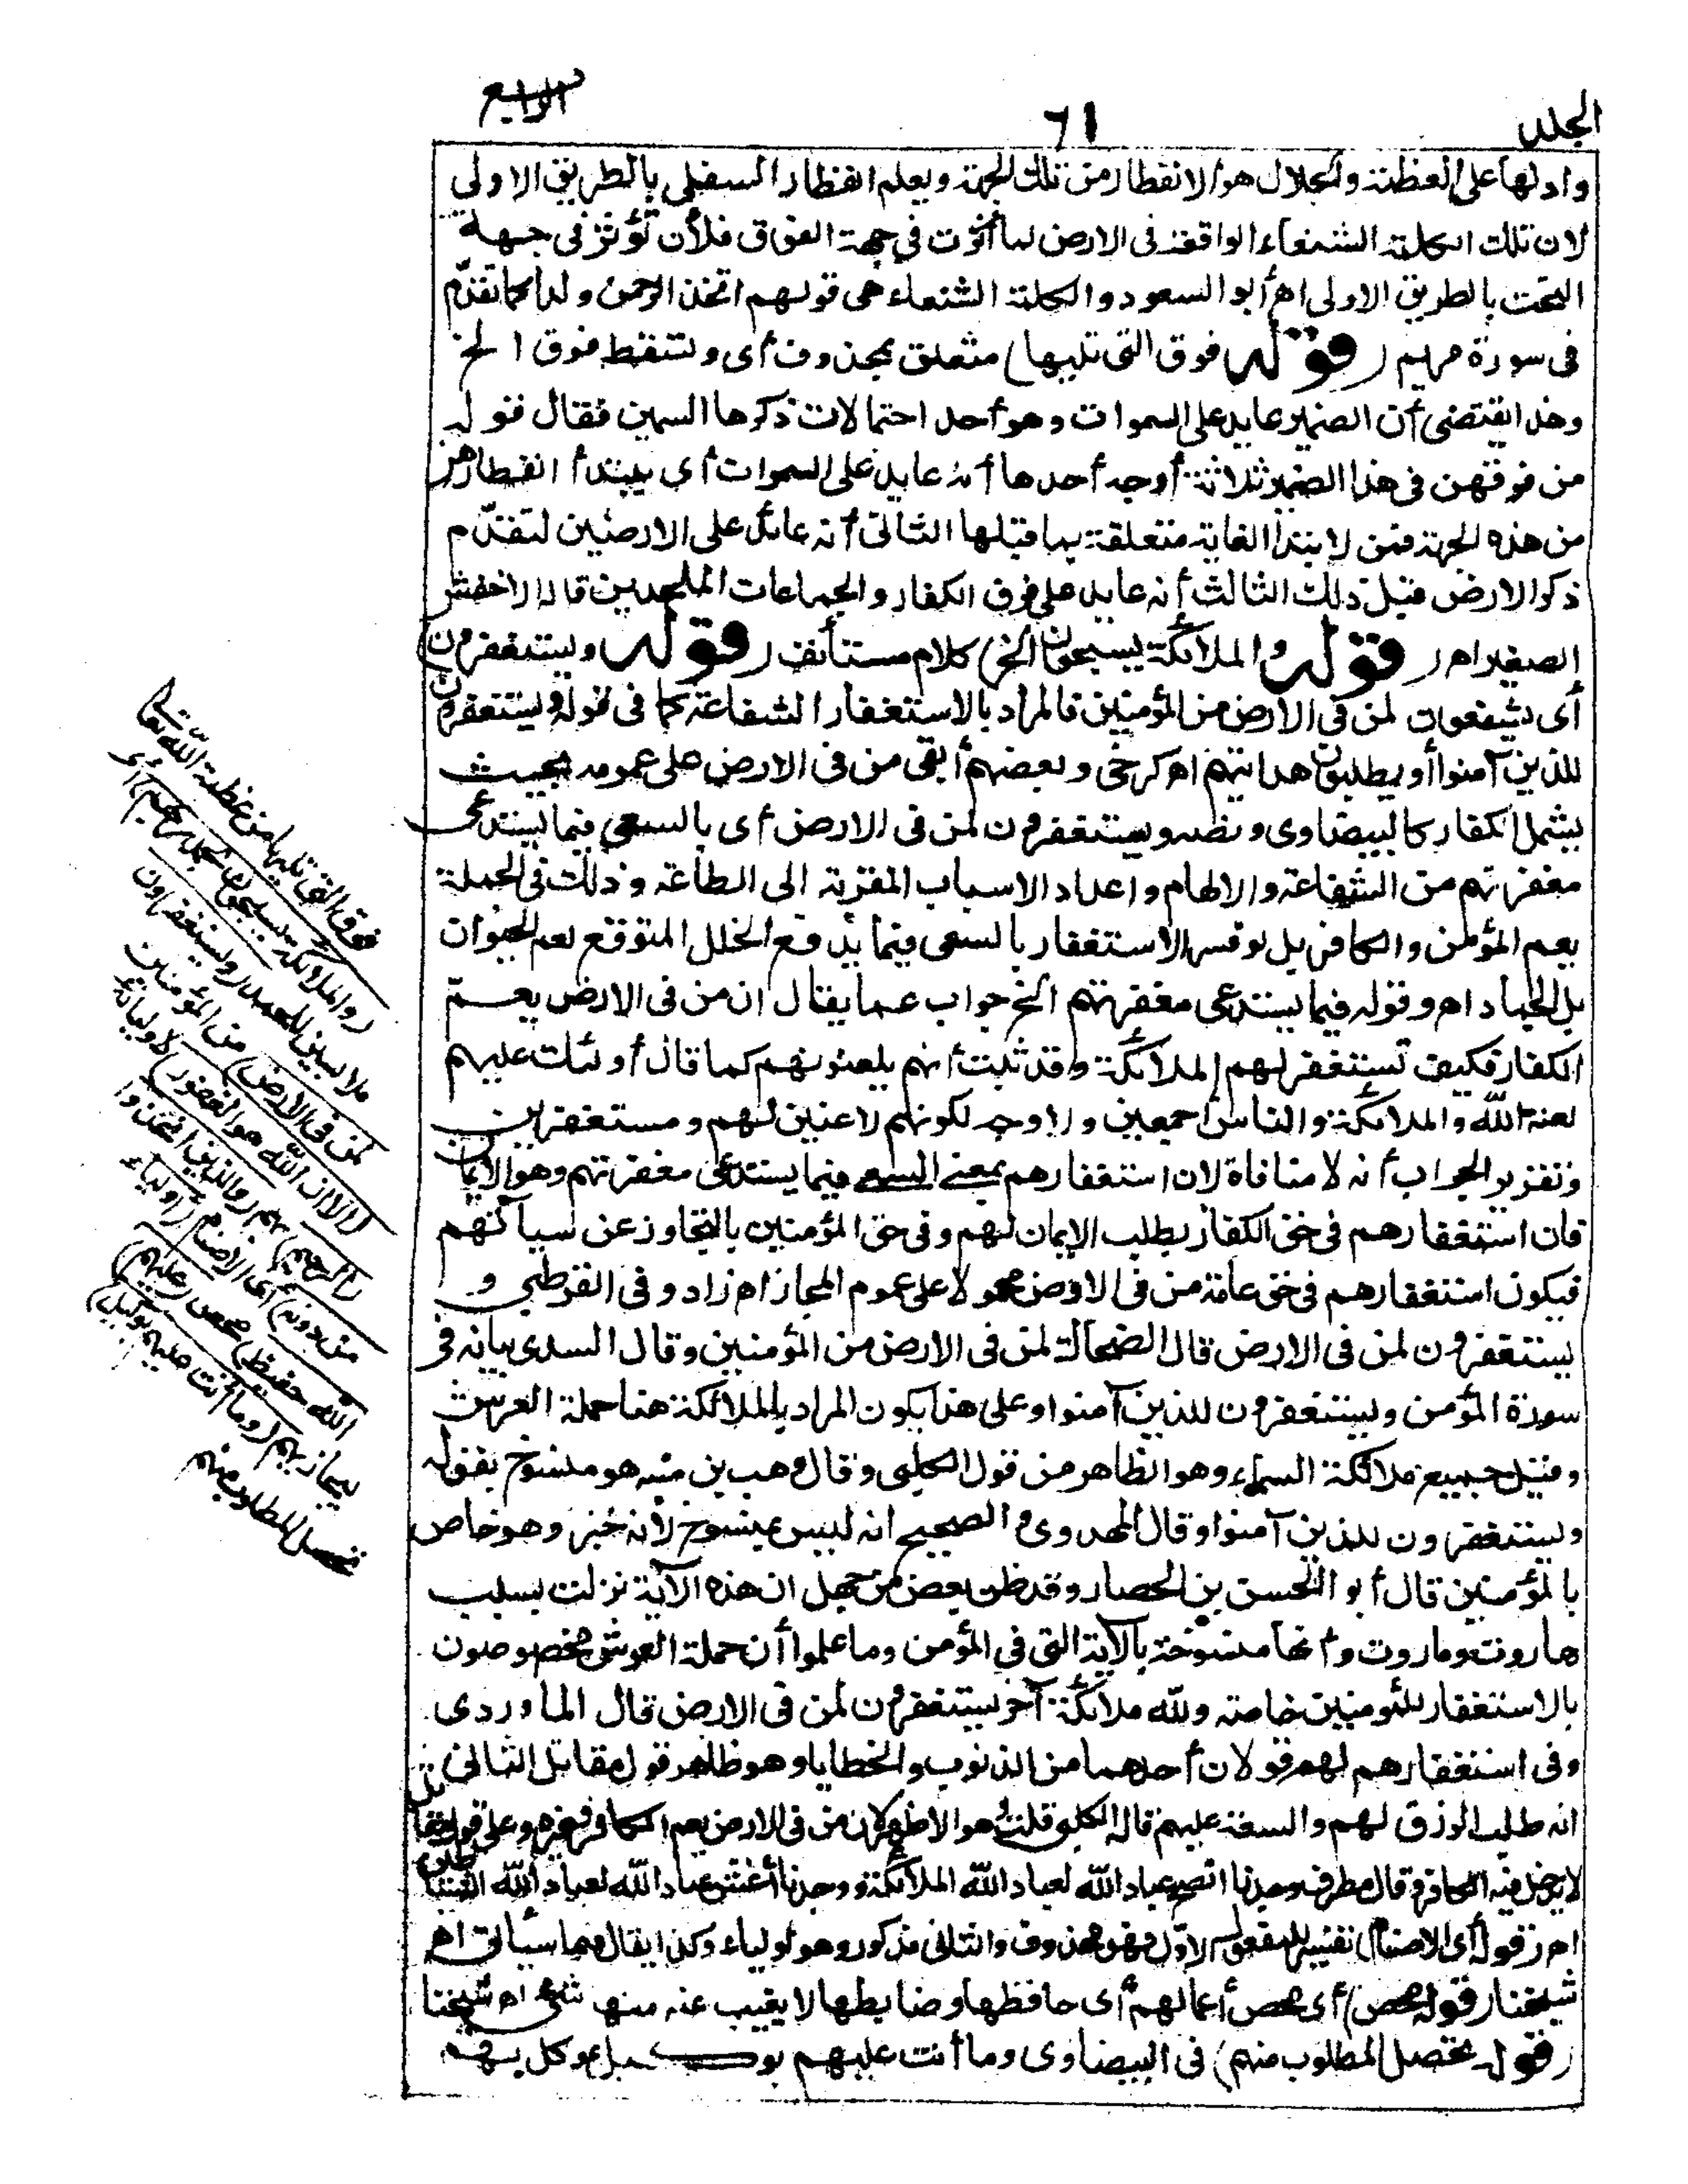 الجلد ٦١ الرابع
وادلها على العظمة والجلال هو الانفطار من تلك الجهة ويعلم انفطار السفلى بالطريق الاولى
لان تلك الكلمة الشنعاء الواقعة فى الارض لما أثرت في جهة الفوق فلأن تؤثر فى جهة
التحت بالطريق الاولى اه أبو السعود والكلمة الشنعاء هى قولهم اتخذ الرحمن ولدا كما تقدّم
فى سورة مريم (قوله فوق التى تليها) متعلق بمحذوف أى وتسقط فوق الخ
وهذا يقتضى أن الضمير عايد على السموات وهو أحد احتمالات ذكرها السمين فقال قوله
من فوقهن فى هذا الضمير ثلاثة أوجه أحدها أنه عايد على السموات أى يبتدأ انفطارهن
من هذه الجهة فمن لابتداء الغاية متعلقة بما قبلها الثانى أنه عائد على الارضين لتقدّم
ذكر الارض قبل ذلك الثالث أنه عايد على فرق الكفار والجماعات الملحدين قاله الاخفش
الصغير اه (قوله والملائكة يسبحون الخ) كلام مستأنف (قوله ويستغفرون)
أى يشفعون لمن فى الارض من المؤمنين فالمراد بالاستغفار الشفاعة كما فى قوله ويستغفرون
للذين آمنوا أو يطلبون هدايتهم اه كرخى وبعضهم أبقى من فى الارض على عمومه بحيث
يشمل الكفار كالبيضاوى ونصه ويستغفرون لمن فى الارض أى بالسعي فيما يستدعى
مغفرتهم من الشفاعة والالهام واعداد الاسباب المقربة الى الطاعة وذلك فى الجملة
يعم المؤمن والكافر بل لو فسر الاستغفار بالسعى فيما يدفع الخلل المتوقع لعم الحيوان
بل الجماد اه وقوله فيما يستدعى مغفرتهم الخ جواب عما يقال ان من فى الارض يعمّ
الكفار فكيف تستغفر لهم الملائكة وقد ثبت أنهم يلعنونهم كما قال أولئك عليهم
لعنة الله والملائكة والناس أجمعين ولا وجه لكونهم لاعنين لهم ومستغفرين
وتقرير الجواب أنه لا منافاة لان استغفارهم بمعنى السعى فيما يستدعى مغفرتهم وهو الايمان
فان استغفارهم فى حق الكفار بطلب الإيمان لهم وفى حق المؤمنين بالتجاوز عن سيآتهم
فيكون استغفارهم فى حق عامة من فى الارض محمولا على عموم المجاز اه زاده وفى القرطبي و
يستغفرون لمن فى الارض قال الضحاك لمن فى الارض من المؤمنين وقال السدى بيانه فى
سورة المؤمن ويستغفرون للذين آمنوا وعلى هذا يكون المراد بالملائكة هنا حملة العرش
وقيل جميع ملائكة السماء وهو الظاهر من قول الكلبى وقال وهب بن منبه هو منسوخ بقوله
ويستغفرون للذين آمنوا وقال المهدوى والصحيح انه ليس بمنسوخ لأنه خبر وهو خاص
بالمؤمنين قال أبو الحسن بن الحصار وقد ظن بعض من جهل ان هذه الآية نزلت بسبب
هاروت وماروت وأنها منسوخة بالآية التى فى المؤمن وما علموا أن حملة العرش مخصوصون
بالاستغفار للمؤمنين خاصة ولله ملائكة آخر يستغفرون لمن فى الارض قال الماوردى
وفى استغفارهم لهم قولان أحدهما من الذنوب والخطايا وهو ظاهر قول مقاتل الثانى
انه طلب الرزق لهم والسعة عليهم قاله الكلبى قلت وهو الاظهر لان من فى الارض يعم الكافر وغيره وعلى قول مقاتل
لا يدخل فيه الكافر وقال مطرف وجدنا انصح عباد الله لعباد الله الملائكة ووجدنا أغش عباد الله لعباد الله الشياطين
اه (قوله أى الاصنام) تفسير للمفعول الاوّل فهو محذوف والثانى مذكور وهو أولياء وكذا يقال فيما سيأتى اه
شيخنا (قوله محص) أى محص أعمالهم أى حافظها وضابطها لا يغيب عنه منها شئ اه شيخنا
(قوله تحصل المطلوب منهم) فى البيضاوى وما أنت عليهم بوكيل بموكل بهم
فوق التى تليها من عظمة الله تعالى
(والملائكة يسبحون بحمد ربهم) أى
ملابسين للحمد (ويستغفرون
لمن فى الارض) من المؤمنين
(ألا ان الله هو الغفور) لأوليائه
(الرحيم) بهم (والذين اتخذوا
من دونه) أى الاصنام (أولياء
الله حفيظ) محص (عليهم)
ليجازيهم (وما أنت عليهم بوكيل)
تحصل المطلوب منهم